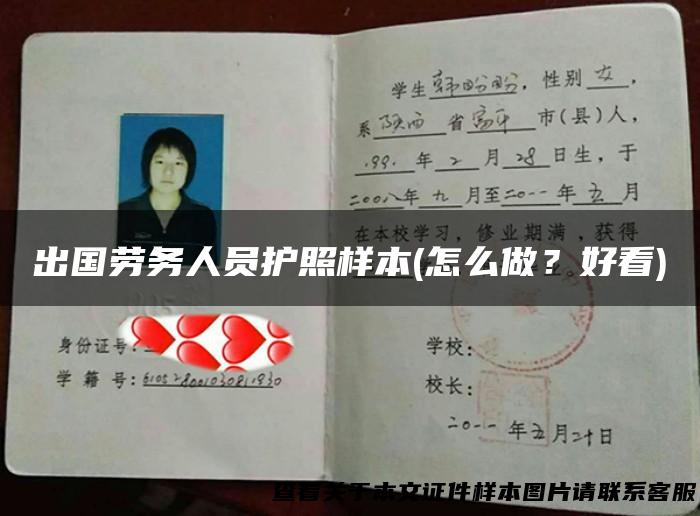 学生 韩盼盼，性别 女，
系 陕西 省 富平 市(县)人，
1991 年 2 月 28 日生，于
二00八年 九 月至二0一一年 五 月
在本校学习，修业期满，获得
出国劳务人员护照样本(怎么做？好看)
身份证号：
学 籍 号：
学校：
校长：
二0一一 年五月二十日
查看关于本文证件样本图片请联系客服